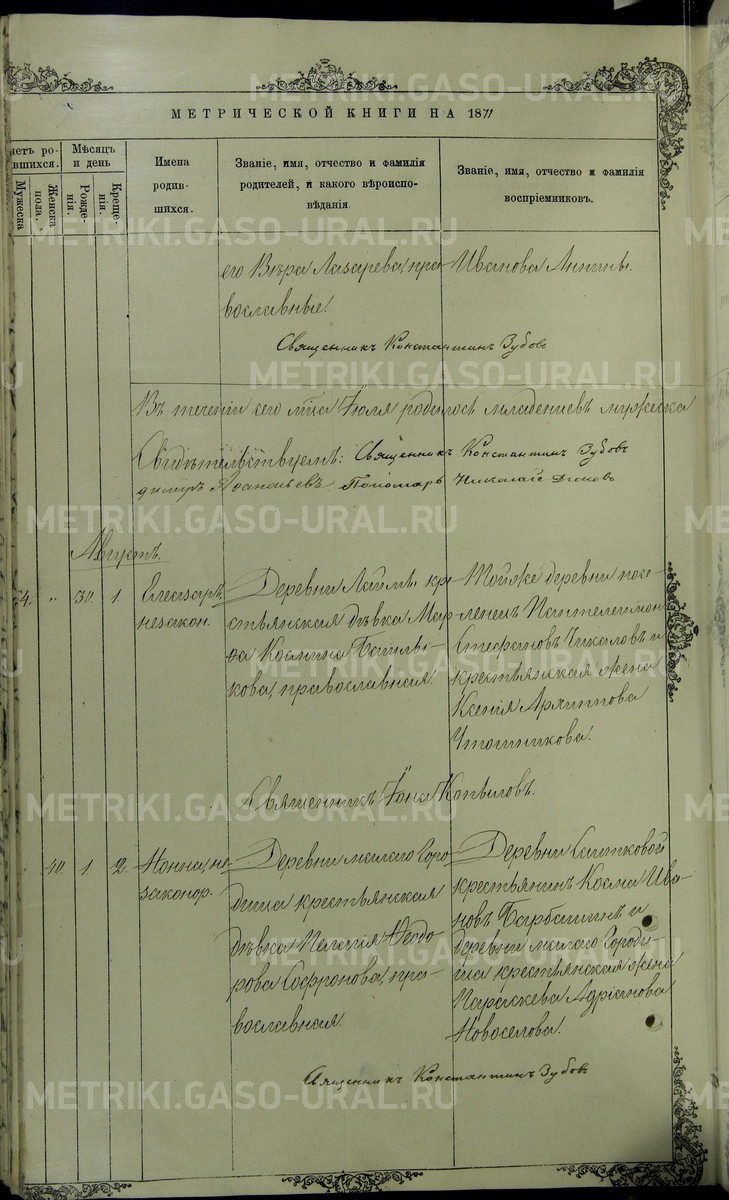 МЕТРИЧЕСКОЙ КНИГИ НА 1871
Счетъ родившихся.
Мѣсяцъ и день
Мужеска
Женска
пола.
Рожденія.
Крещенія.
Имена
родив-
шихся.
Званіе, имя, отчество и фамилія
родителей, и какого вѣроиспо-
вѣданія
Званіе, имя, отчество и фамилія
воспріемниковъ.
его Вѣра Лазарева, пра-
вославные.
Ивановa
Священникъ Константинъ Зубовъ
Въ теченіи сего мѣца Іюля родилось младенцевъ мужеска
Свидѣтельствуемъ: Священникъ Константинъ Зубовъ
Пономарь Николай
Августъ.
30. 1.
незакон.
Деревни кре-
стьянская дѣвка Мар-
ѳа Космина
кова, православная.
Тойже деревни посе-
ленецъ Пантелеимонъ
Стефановъ Чикаловъ и
крестьянская жена
Ксенія Архиппова
Священникъ Іона Копыловъ.
40. 1. 2.
Нонна, не-
законор.
Деревни малаго Горо-
дища крестьянская
дѣвка Пелагія Ѳеодо-
рова Софронова, пра-
вославная.
Деревни
крестьянинъ Косма Ива-
новъ и
деревни малаго Городи-
ща крестьянская жена
Параскева Адріанова
Новоселова.
Священникъ Константинъ Зубовъ
METRIKI.GASO-URAL.RU